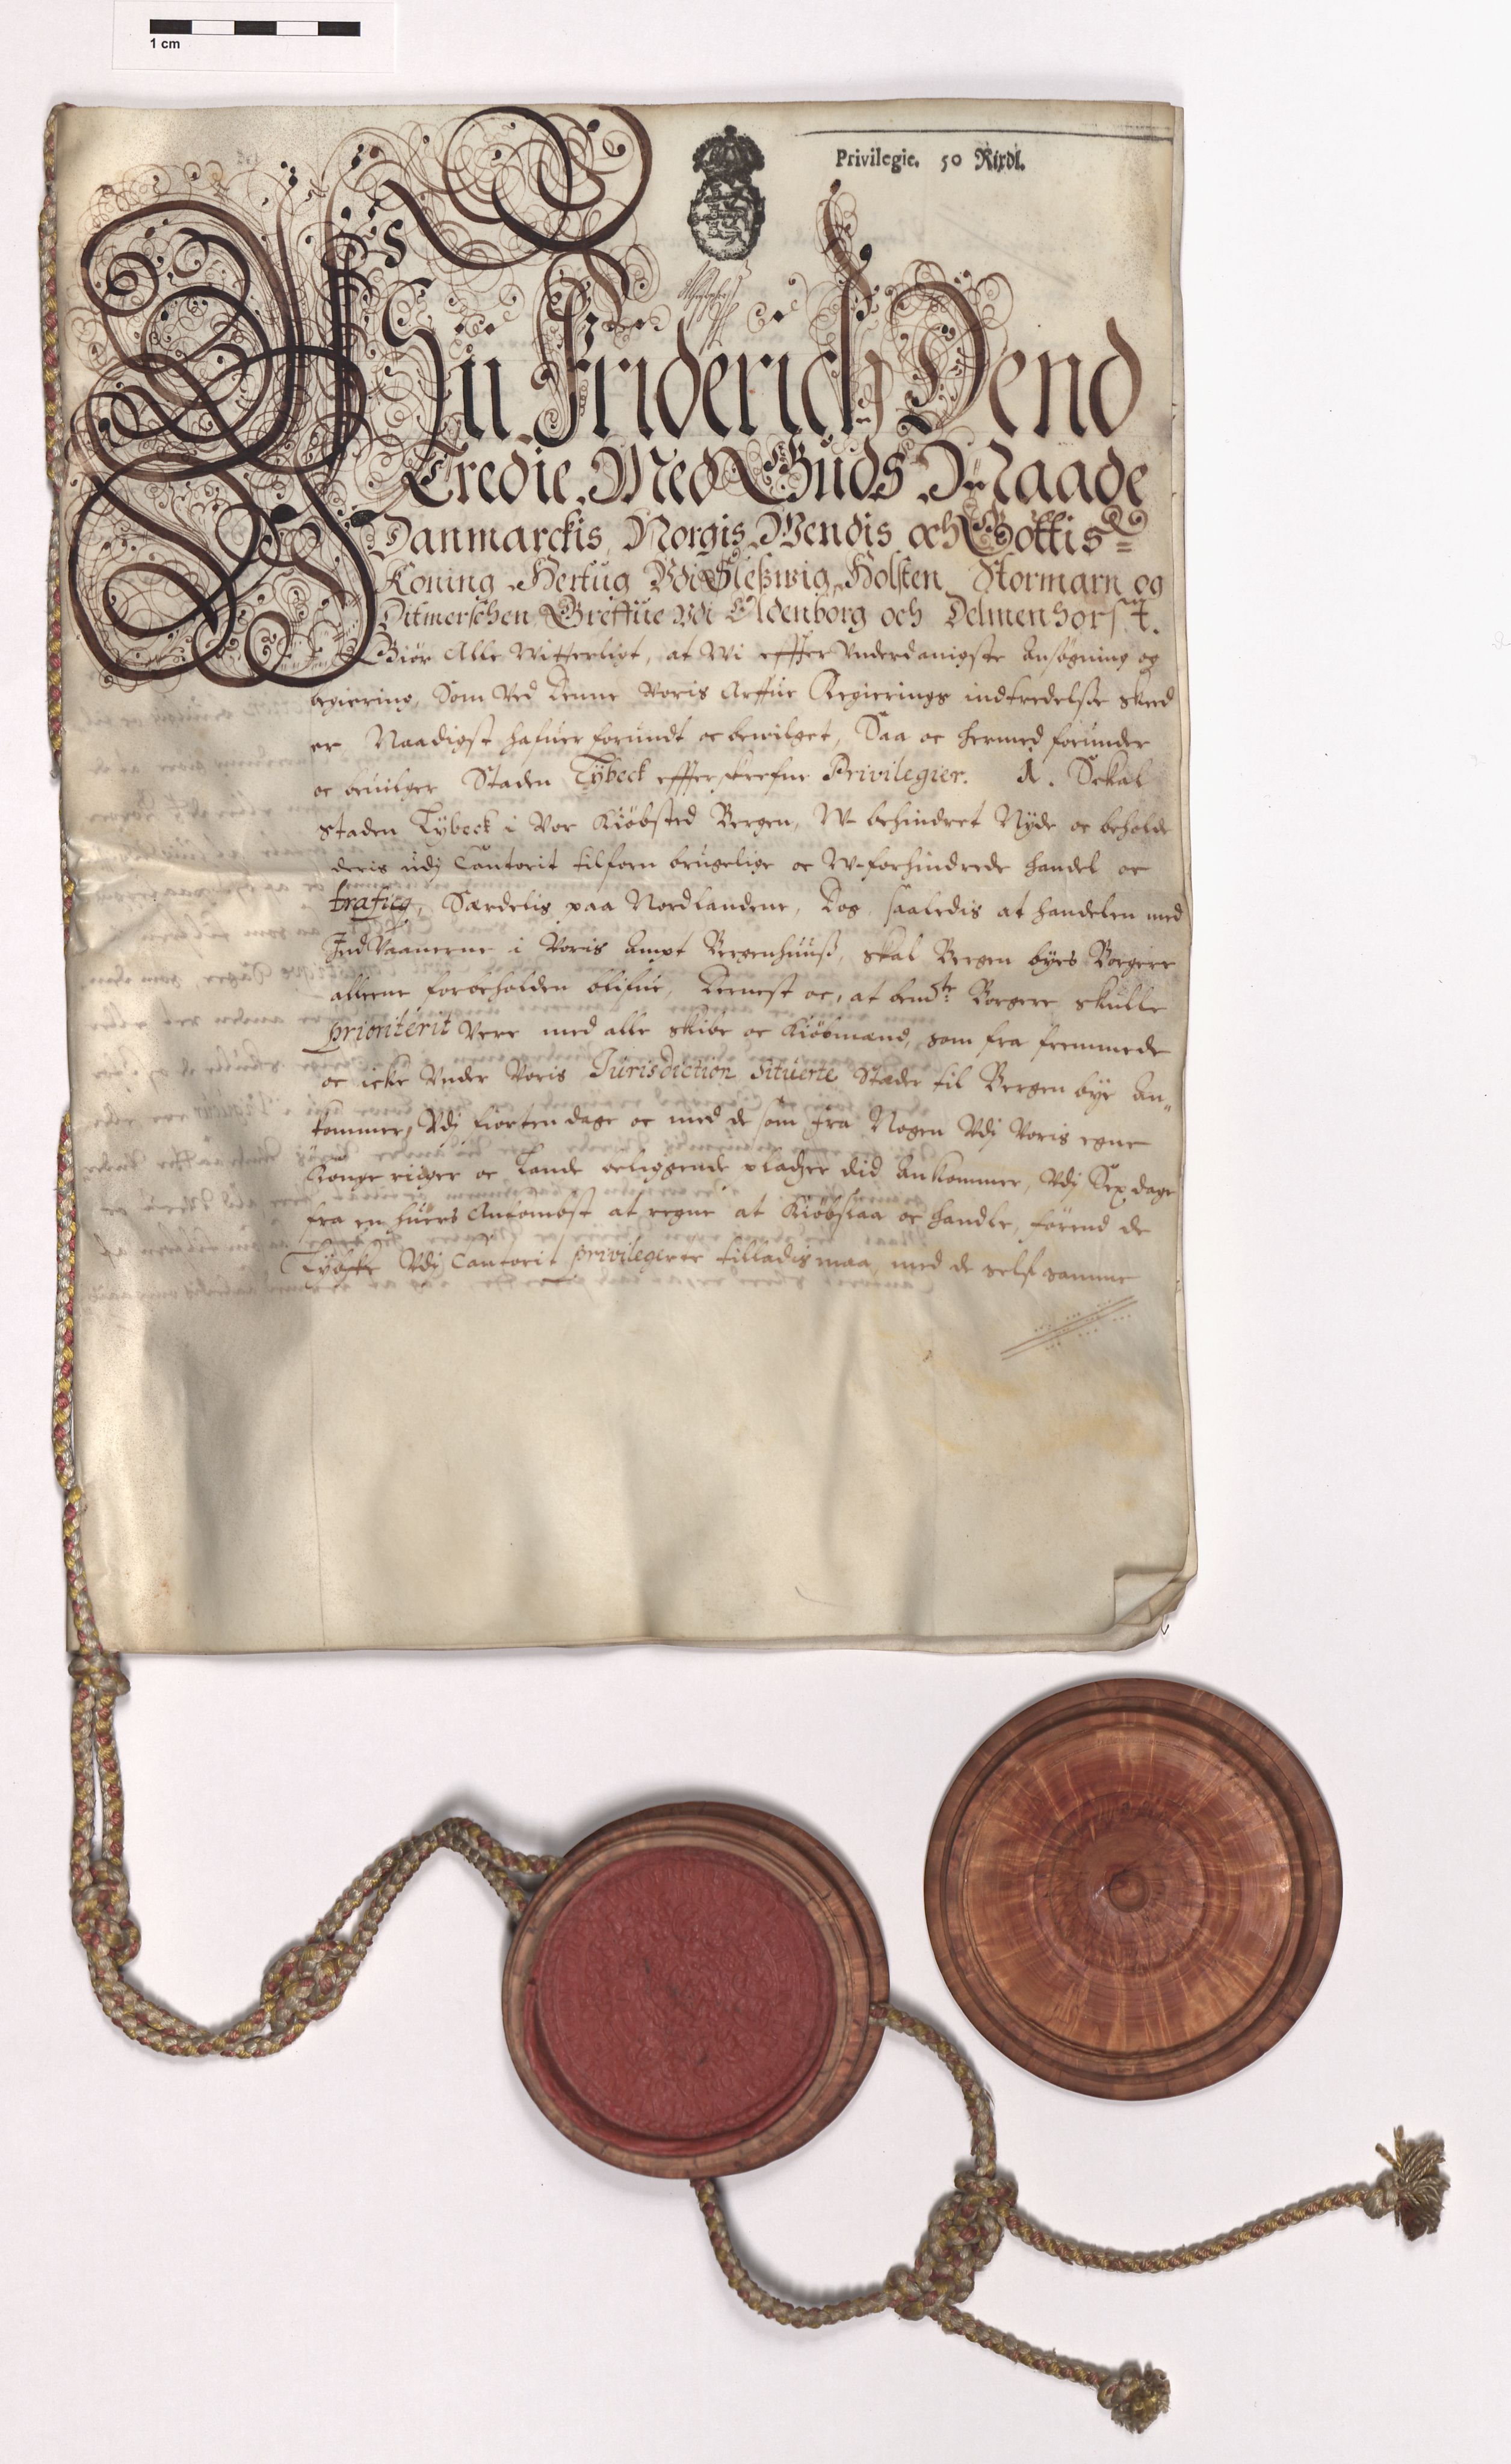 1 cm
Privilegie. 50 Rixdl.
Wii Friderich Dend
Tredie Med Guds Naade
Danmarckis, Norgis Wendis och Gottis
Koning Hertug Udi Sleßwig, Holsten Stormarn og
Ditmerschen Greffue udi Oldenborg och Delmenhorst.
Giör Alle Witterligt, at Wi effter Underdanigste Ansögning og
begiering, Som Ved Denne Voris Arffue Regierings indtredelse skeed
er Naadigst hafuer forundt oc bewilget, Saa oc hermed forunder
oc beuilger Staden Lybeck effterskrefne Privilegier. 1. Skal
staden Lybeck i Vor Kiöbsted Bergen, W-behindret Nyde oc beholde
deris udj Cantorit tilforn brugelige oc W-forhindrede handel oc
trafieq, Særdelis paa Nordlandene, Dog saaledis at handelen med
IndVaanerne i Voris Ampt Bergenhuuß, skal Bergen byes Borgere
alleene forbeholden blifue, Dernest oc, at bem.te Borgere skulle
prioriterit Vere med alle skibe oc Kiöbmænd, som fra fremmede
oc icke Under Voris Jurisdiction Situerte Stæder til Bergen bye An„
kommer, Udj fiorten dage oc med de som fra Nogen Udj Voris egne
Konge riger oc Lande beliggende pladzer did Ankommer, Udj Sex dage
fra en huers Ankomst at regne at Kiöbslaa oc handle, förend de
Lybske Udj Cantorit privilegerte tilladis maa, med de self samme